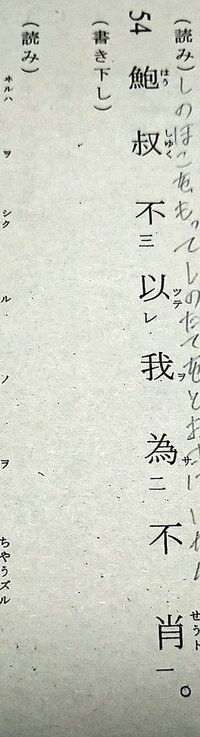 (読み)しのほこをもってしのたてをとお
54 鮑はう叔しゆく不三以ツテレ我ヲ為サ二不肖せうト一。
(書き下し)
(読み)
ヰルハ ヲ シク ル ノ ヲ ちやうズル